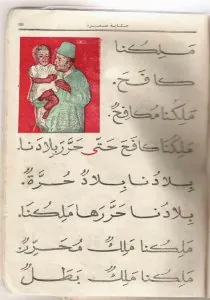 حكاية صغيرة
مَلِكُنَا
كَافَحَ.
مَلِكُنَا مُكَافِحٌ.
مَلِكُنَا كَافَحَ حَتَّى حَرَّرَ بِلَادَنَا.
بِلَادُنَا بِلَادٌ حُرَّةٌ.
بِلَادُنَا حَرَّرَهَا مَلِكُنَا.
مَلِكُنَا مَلِكٌ مُحَرِّرٌ.
مَلِكُنَا مَلِكٌ بَطَلٌ